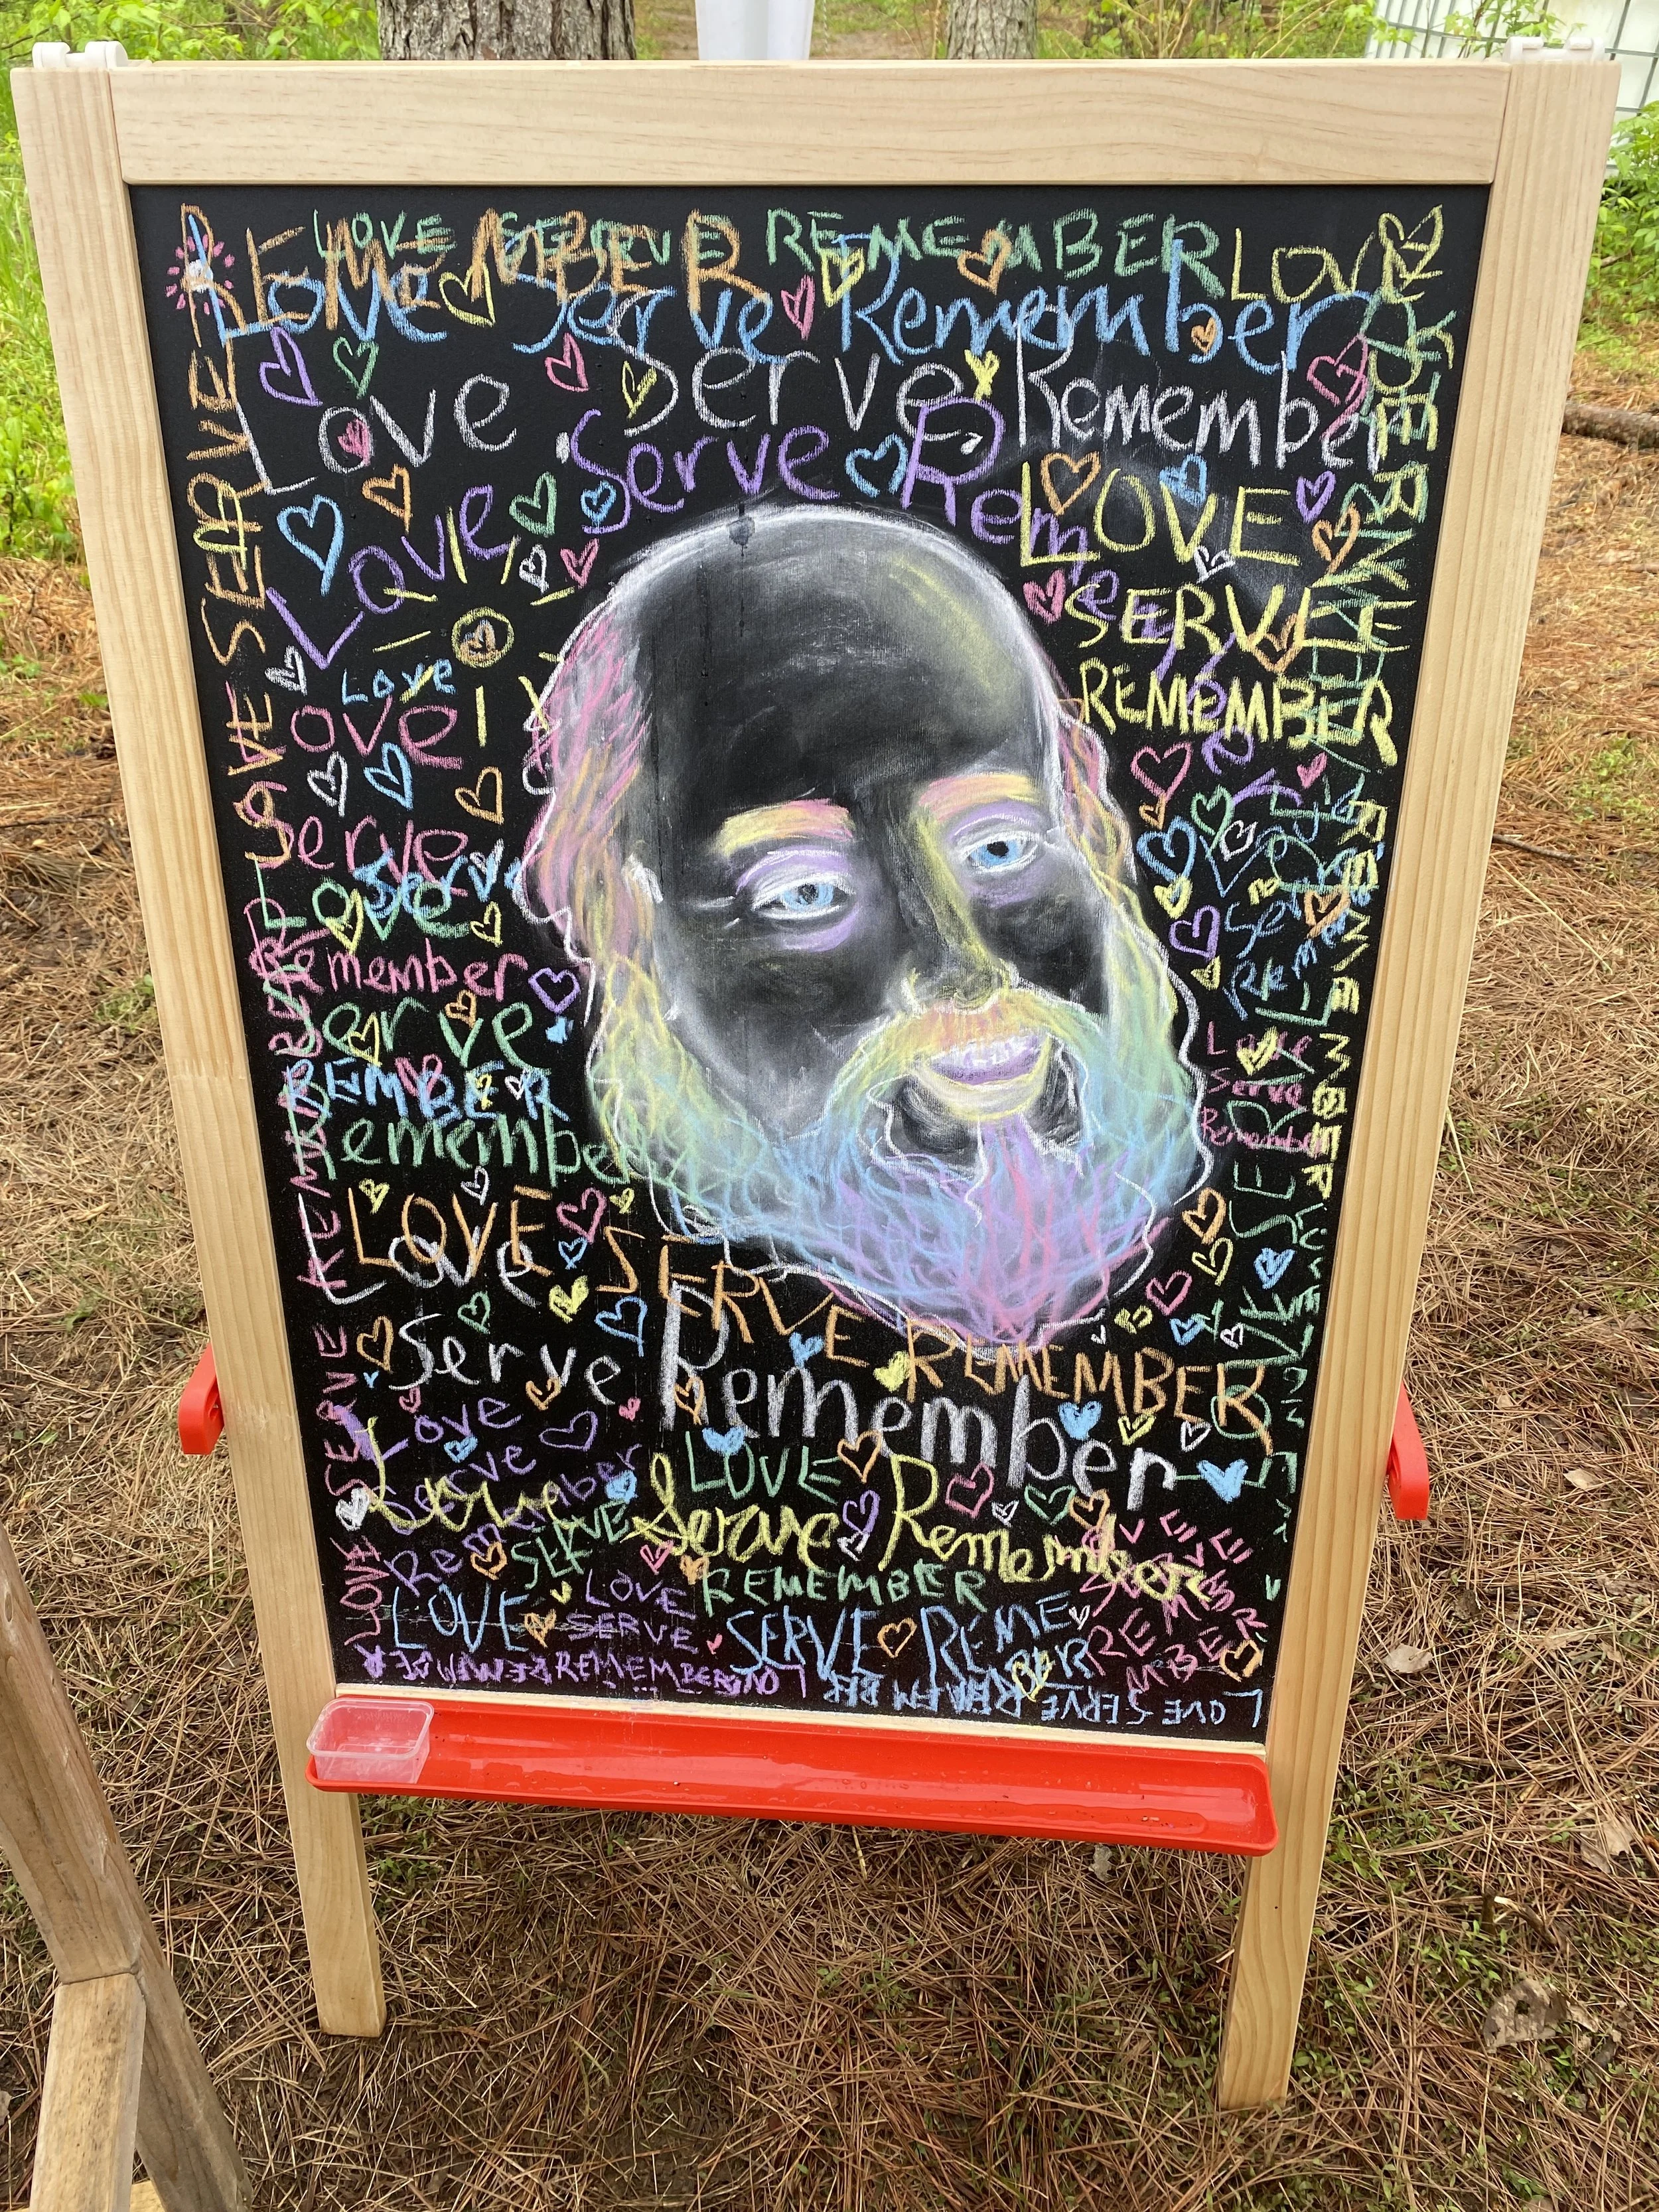 LOVE SERVE REMEMBER LOVE
REMEMBER
Love Serve Remember
Love Serve Remember
Love Serve Remember
LOVE
SERVE
REMEMBER
Love
Love
Serve
Serve
Love
Remember
Serve
REMEMBER
Remember
Love
Serve
Remember
LOVE SERVE REMEMBER
Love
Serve Remember
Love
Serve
Remember
LOVE
SERVE
REMEMBER
Love Serve Remember
LOVE
SERVE
REMEMBER
LOVE
SERVE
REMEMBER
LOVE SERVE REMEMBER
REMEMBER
LOVE
LOVE SERVE REMEMBER
SERVE
LOVE
SERVE
LOVE
REMEMBER